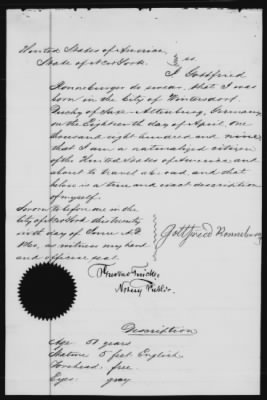 United States of America,
State of New York. } ss.
I Gottfried
Ronneburger do swear, that I was
born in the City of
Duchy of Saxe-Altenburg, Germany,
on the Eighteenth day of April, one
thousand eight hundred and nine
that I am a naturalized citizen
of the United States of America and
about to travel abroad, and that
below is a true and exact description
of myself.
Sworn to before me in the
City of New York this twenty
day of June A.D.
as witness my hand
and official seal.
Gottfried Ronneburger
Notary Public
Description
Age 51 years
Stature 5 feet English
Forehead free
Eyes gray